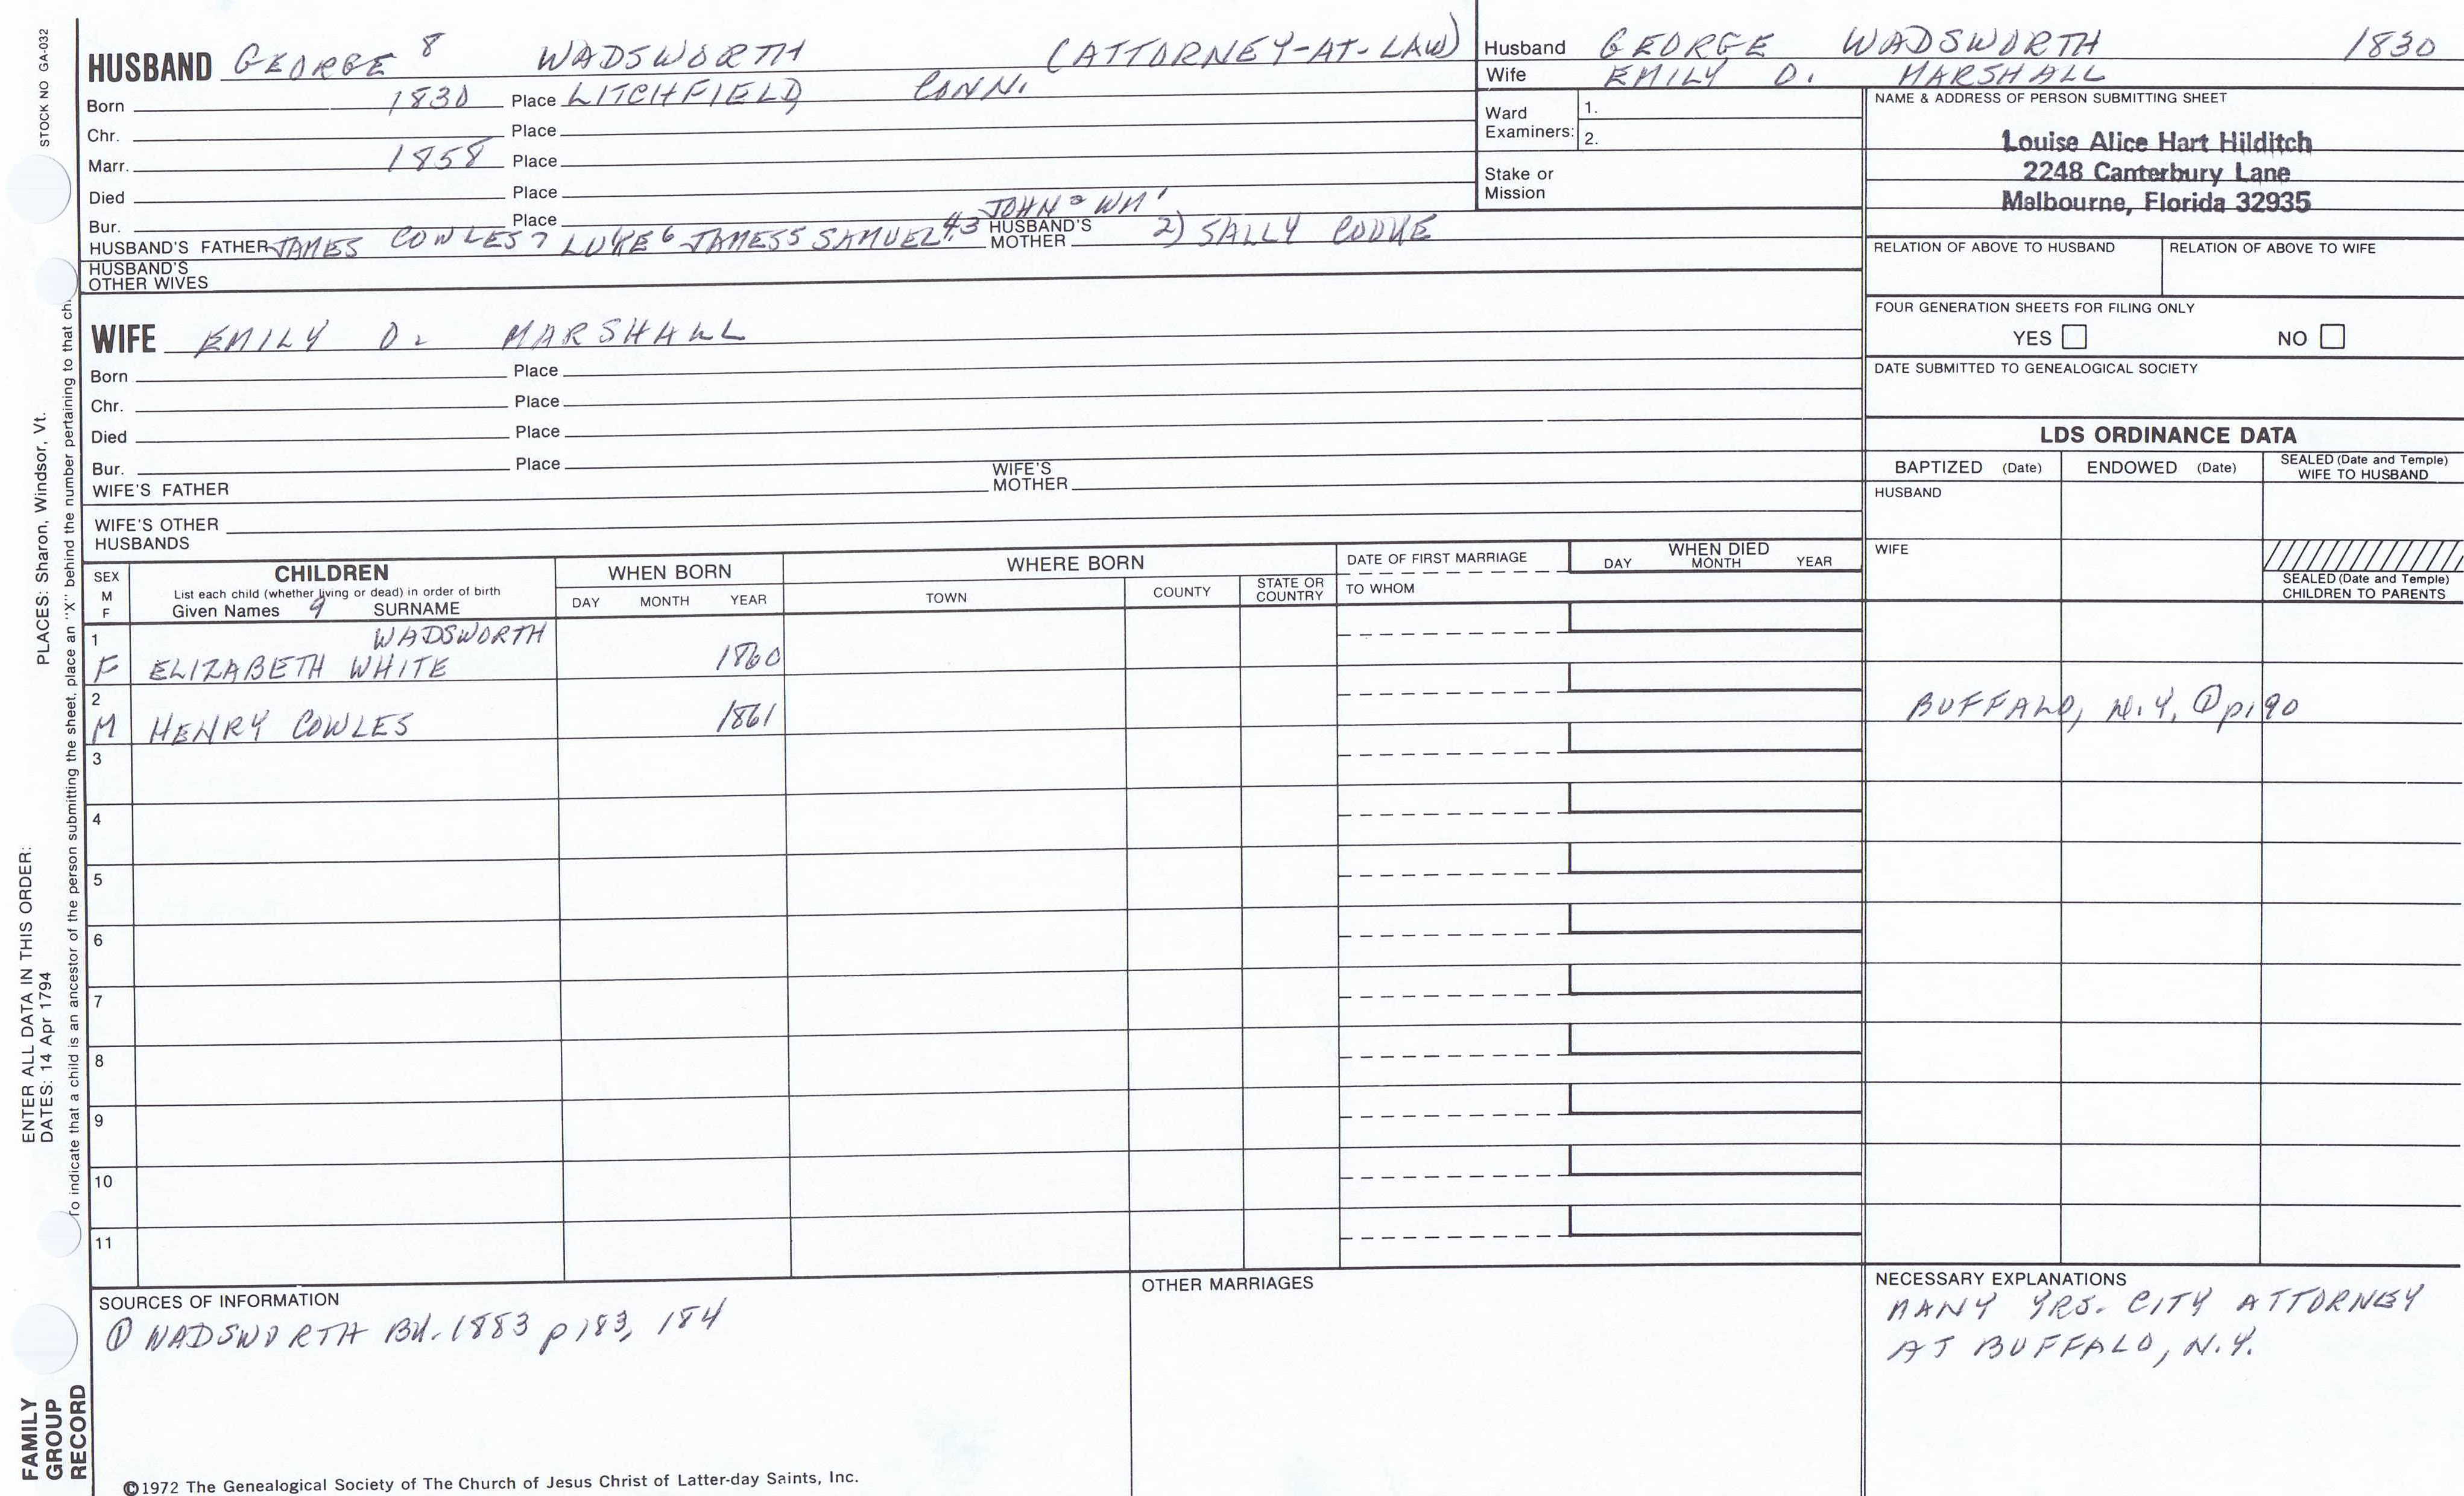 STOCK NO GA-032
HUSBAND GEORGE 8 WADSWORTH (ATTORNEY-AT-LAW)
Born 1830 Place LITCHFIELD CONN.
Chr. Place
Marr. 1858 Place
Died Place
Bur. Place JOHN 2 WM 1
HUSBAND'S FATHER JAMES COWLES 7 LUKE 6 JAMES 5 SAMUEL 4,3 HUSBAND'S MOTHER 2) SALLY COOKE
HUSBAND'S OTHER WIVES
WIFE EMILY O. MARSHALL
Born Place
Chr. Place
Died Place
Bur. Place
WIFE'S FATHER WIFE'S MOTHER
WIFE'S OTHER HUSBANDS
Husband GEORGE WADSWORTH 1830
Wife EMILY O. MARSHALL
Ward Examiners: 1.
2.
Stake or Mission
NAME & ADDRESS OF PERSON SUBMITTING SHEET
Louise Alice Hart Hilditch
2248 Canterbury Lane
Melbourne, Florida 32935
RELATION OF ABOVE TO HUSBAND RELATION OF ABOVE TO WIFE
FOUR GENERATION SHEETS FOR FILING ONLY
YES NO
DATE SUBMITTED TO GENEALOGICAL SOCIETY
LDS ORDINANCE DATA
BAPTIZED (Date) ENDOWED (Date) SEALED (Date and Temple) WIFE TO HUSBAND
HUSBAND
WIFE
SEALED (Date and Temple)
CHILDREN TO PARENTS
SEX M F
CHILDREN
List each child (whether living or dead) in order of birth
Given Names 9 SURNAME
WHEN BORN
DAY MONTH YEAR
WHERE BORN
TOWN COUNTY STATE OR COUNTRY
DATE OF FIRST MARRIAGE
TO WHOM
WHEN DIED
DAY MONTH YEAR
1 WADSWORTH
F ELIZABETH WHITE 1860
2
M HENRY COWLES 1861 BUFFALO, N.Y. ① p190
3
4
5
6
7
8
9
10
11
SOURCES OF INFORMATION
① WADSWORTH BK. 1883 p183, 184
OTHER MARRIAGES
NECESSARY EXPLANATIONS
MANY YRS. CITY ATTORNEY
AT BUFFALO, N.Y.
©1972 The Genealogical Society of The Church of Jesus Christ of Latter-day Saints, Inc.
FAMILY
GROUP
RECORD
ENTER ALL DATA IN THIS ORDER:
DATES: 14 Apr 1794 PLACES: Sharon, Windsor, Vt.
To indicate that a child is an ancestor of the person submitting the sheet, place an "X" behind the number pertaining to that ch